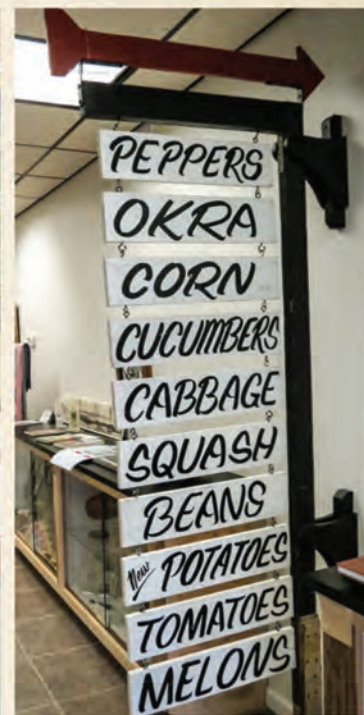 PEPPERS
OKRA
CORN
CUCUMBERS
CABBAGE
SQUASH
BEANS
New POTATOES
TOMATOES
MELONS